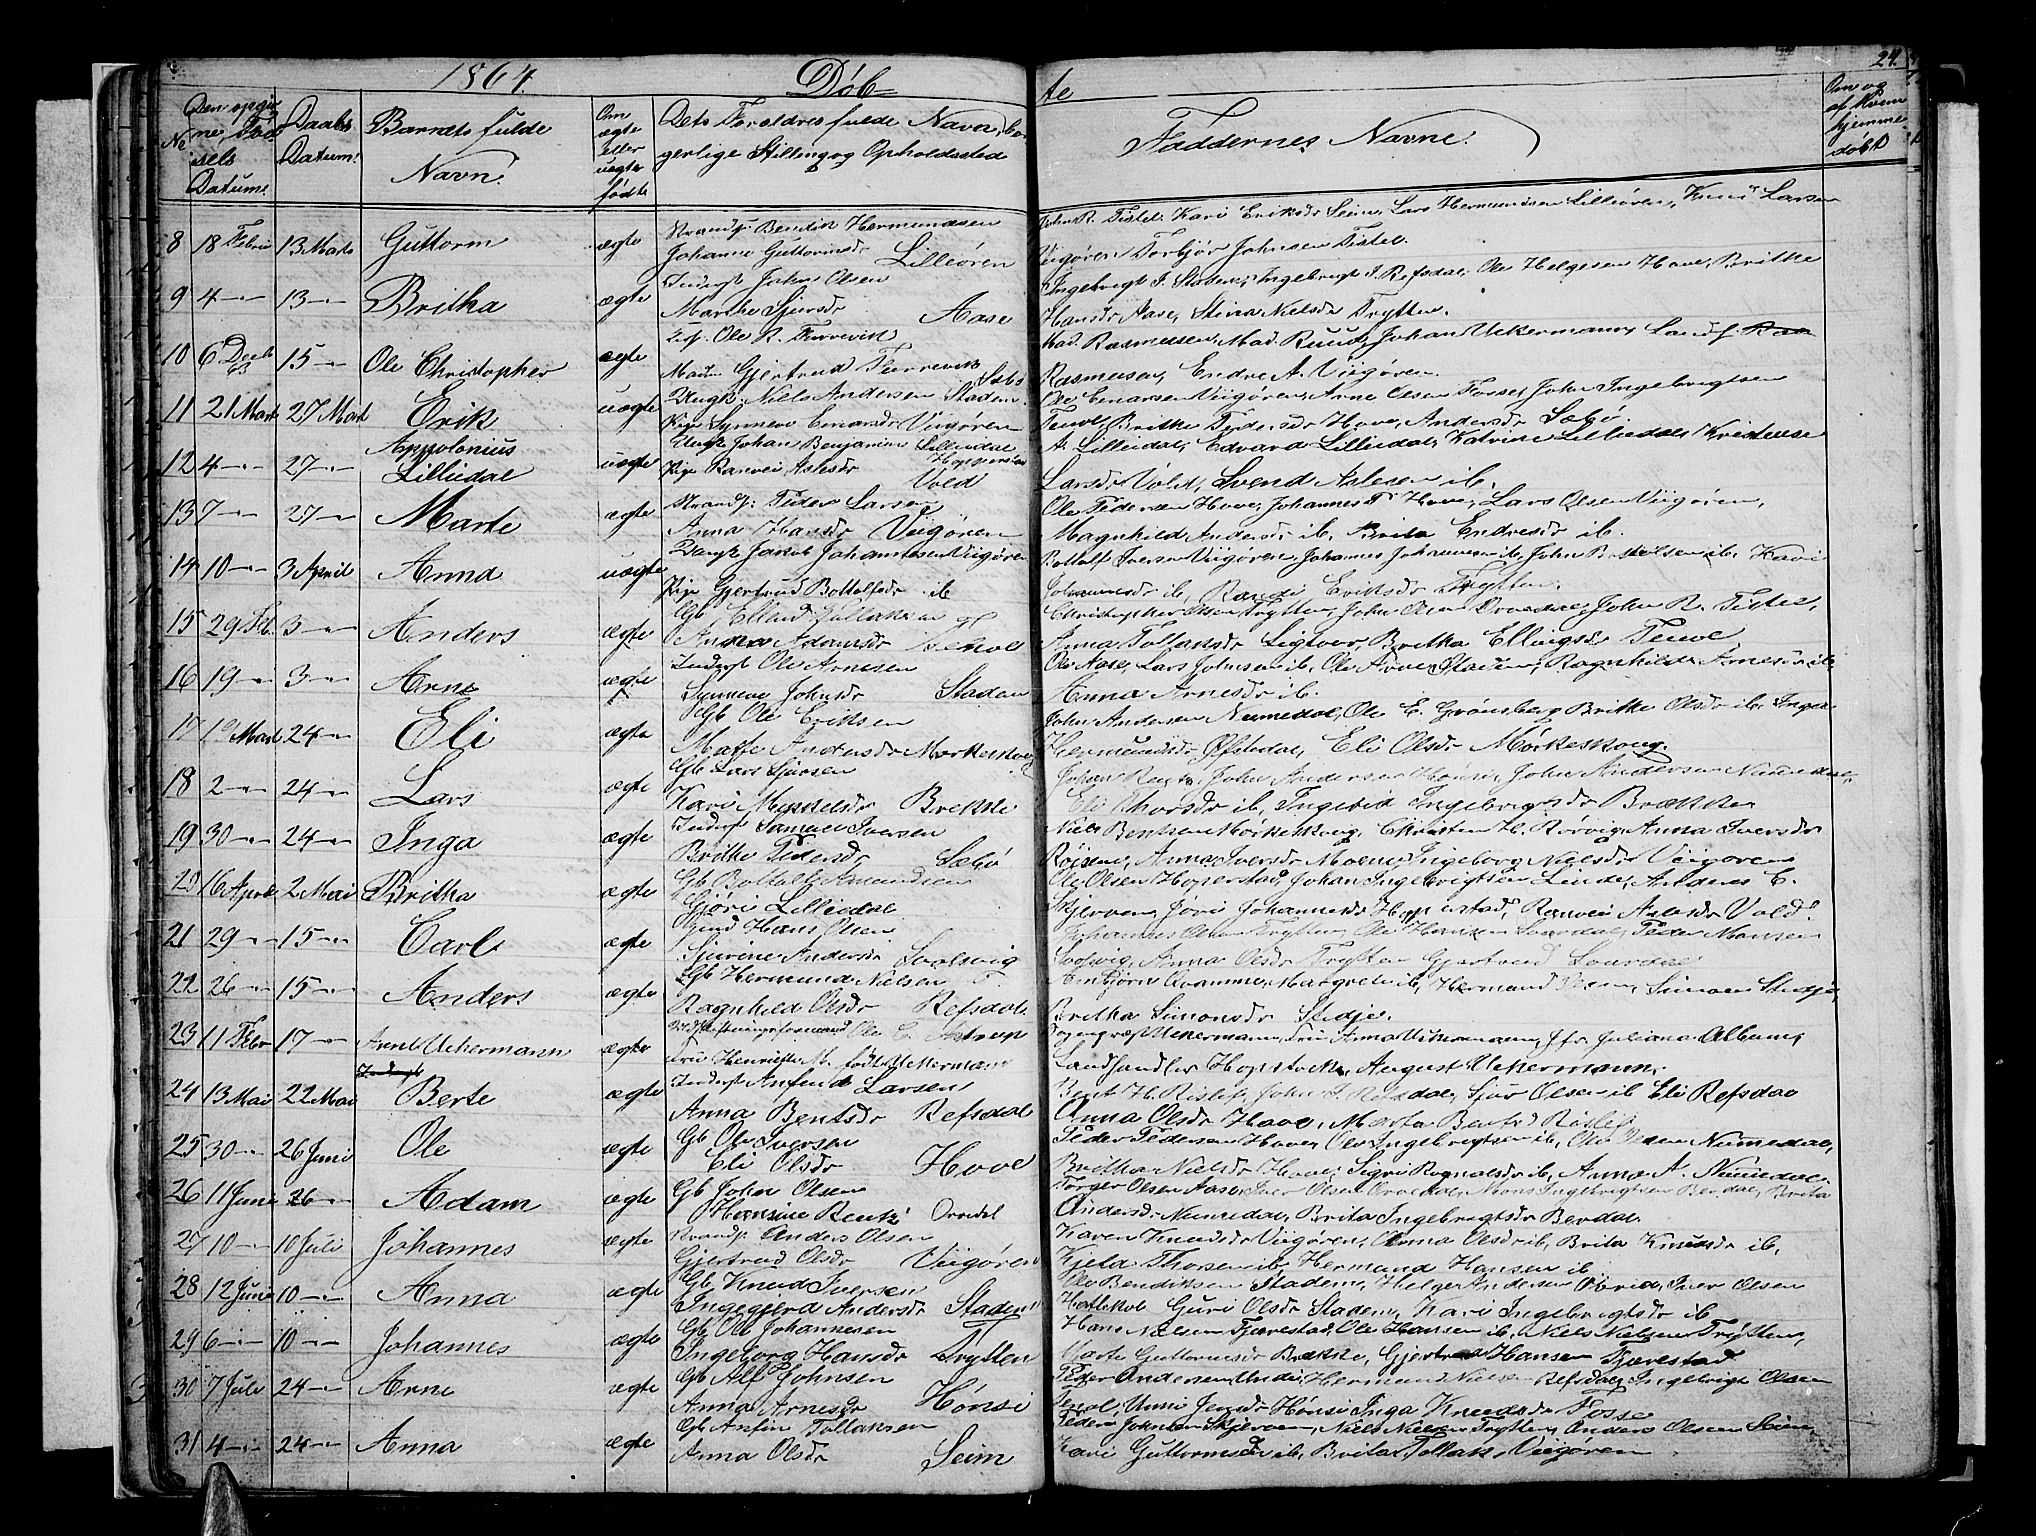 1864 Døb te 24.
No Den opgivne Fødselsdatum. Daabs Datum. Barnets fulde Navn. Om ægte eller uægte fødte Dets Forældres fulde Navn, borgerlige Stilling og Opholdssted Faddernes Navne. Om og af Hvem hjemmedøbt
8 18 Febru 13 Marts Guttorm ægte Strandsr. Bendik Hermundsen
Johanne Guttormsdr Lilleøren
John R. Tistel, Kari Eriksdr Seim, Lars Hermundsen Lilleøren, Knud Larsen
Viigøren Torbjør Johnsen Tistel.
9 4 - 13 - Britha ægte Inderst John Olsen
Marthe Sjursdr Aase
Ingebrigt J. Stadem, Ingebrigt J. Refsdal, Ole Helgesen Hove, Britha
Hansdr Aase, Stina Nielsdr Trytten.
10 6 Decb 63 15 - Ole Christopher ægte Ole R.
Madm Gjertrud
Mad. Rasmusen, Mad. Ruud, Johan Uckermann, Landh
Rasmusen, Endre A. Viigøren.
11 21 Mart 27 Mart Erik uægte Ungk. Niels Andersen Stadem
Pige Synneve Einarsdr Viigøren
Ole Einarsen Viigøren, Arne Olsen Fosse, John Ingebrigtsen
Tenol, Brithe Pedersdr Hove, Andersdr Sæbø.
12 4 - 27 - Appolonius
Lilliedal uægte Ungk Johan Benjamin Lilliedal Hopperstad
Pige Ranvei Aslesdr Vold
A. Lilliedal, Edvard Lilliedal, Katrine Lilliedal, Kristense
Larsdr Vold, Svend Aslesen ib.
13 7 - 27 - Marte ægte Strandsr. Peder Larsen
Anna Hansdr Viigøren
Ole Pedersen Hove, Johannes P Hove, Lars Olsen Viigøren,
Magnhild Andersdr ib. Brita Endresdr ib.
14 10 - 3 April Anna uægte Ungk Jakob Johannesen Viigøren
Pige Gjertrud Bottolfsdr ib
Bottolf Iversen Viigøren, Johannes Johannesen ib, John Botolfsen ib. Kari
Johannesdr ib, Randi Eriksdr Trytten.
15 29 Feb. 3 - Anders ægte Gb. Elland Tollaksen
Anna Adamsdr Tenol
Christopher Olsen Trytten, John Olsen Orvedal, John R. Tistel,
Anna Tollaksdr Ligtvor, Britha Ellingsdr Tenol
16 19 - 3 - Arne ægte Inderst Ole Arnesen
Synneve Johnsdr Stadem
Ole Aase, Lars Johnsen ib, Ole Arnes Stadem, Ragnhilda Arnesdr ib
Anna Arnesdr ib.
17 19 Mart 24 - Eli ægte Gb Ole Eriksen
Marte Andersdr Mørkeskoug
John Andersen Numedal, Ole E. Grønsberg Brithe Olsdr ib. Inger
Hermundsdr Ofstedal, Eli Olsdr Mørkeskoug.
18 2 - 24 - Lars ægte Gb Lars Sjursen
Kari Mikkelsdr Brekke
Johan, John Andersen Hønsi, John Andersen Numedal,
Eli Thorsdr ib, Ingebrigtsdr Brække
19 30 - 24 - Inga ægte Inderst Samuel Iversen
Brithe Pedersdr Sæbø
Niels Bentsen Mørkeskoug, Christen H. Rørvig, Anna Iversdr
Anna Iversdr Moene, Ingeborg Nielsdr Viigøren
20 16 April 2 Mai Britha ægte Gb Bottolf Amundsen
Gjøri Lilliedal
Ole Olsen Hoperstad, Johan Ingebrigtsen Linde, Anders E.
Skjerven, Jøri Johannesdr Hoperstad, Ranvei Aslesdr Vold.
21 29 - 15 - Carl ægte Ind Hans Olsen
Sjurine Andersdr Solsvig
Johannes Olsen Trytten, Ole Hansen, Peder Monsen
Anna Olsdr Trytten Gjertrud
22 26 - 15 - Anders ægte Gb Hermund Nielsen
Ragnhild Olsdr Refsdal
Margrete ib, Hermund, Simon Stedje,
Britha Simonsdr Stedje.
23 11 Febr 17 - Arent Uchermann ægte Ole C.
Fru Henriette M. født Uchermann
Sogneprest Uchermann, Fru Anna Uchermann, Jfr. Juliana Album,
Landhandler Hopstock, August Uchermann.
24 13 Mai 22 Mai Inderst Berte ægte Inderst Anfind Larsen
Anna Bentsdr Refsdal
Bent H. Rislef, John J. Refsdal, Sjur Olsen ib Eli Refsdal
Anna Olsdr Hove, Marta Bentsd Rislef
25 30 - 26 Juni Ole ægte Gb Ole Iversen
Eli Olsdr Hove
Peder Pedersen Hove, Ole Ingebrigtsen ib, Ole Olsen Numedal,
Britha Nielsdr Hove, Sigri Rognaldsdr ib, Anna A. Numedal.
26 11 Juni 26 - Adam ægte Gb John Olsen
Hansine Orvedal
Torger Olsen Aase, Iver Olsen Orvedal, Mons Ingebrigtsen Berdal, Brita
Andersdr Numedal, Brita Ingebrigtsdr Berdal.
27 10 - 10 Juli Johannes ægte Strandsr. Anders Olsen
Gjertrud Olsdr Viigøren
Karen Knudsdr Viigøren, Anna Olsdr ib, Brita Knudsdr ib,
Kjeld Thorsen ib, Hermund Hansen ib.
28 12 Juni 10 - Anna ægte Gb Knud Iversen
Ingegjerd Andersdr Stadem
Ole Bendiksen Stadem, Helge Andersen, Iver Olsen
Guri Olsdr Stadem, Kari Ingebrigtsdr ib
29 6 - 10 - Johannes ægte Gb Ole Johannesen
Ingeborg Hansdr Trytten
Hans Nielsen Tjærestad, Ole Hansen ib, Niels Nielsen Trytten,
Marte Guttormsdr Brække, Gjertrud Hansen Tjærestad
30 7 Juli 24 - Arne ægte Gb Alf Johnsen
Anna Arnesdr Hønsi
Peder Andersen Unde, Hermund Nielsen Refsdal, Ingebrigt Olsen
Tenol, Unni Jensdr Hønsi Inga Knudsdr Fosse
31 4 - 24 - Anna ægte Gb Anfin Tollaksen
Anna Olsdr Seim
Peder Johnsen Skjerven, Niels Nielsen Trytten, Anders Olsen Seim,
Kari Guttormsd ib, Brita Tollaksd Viigøren